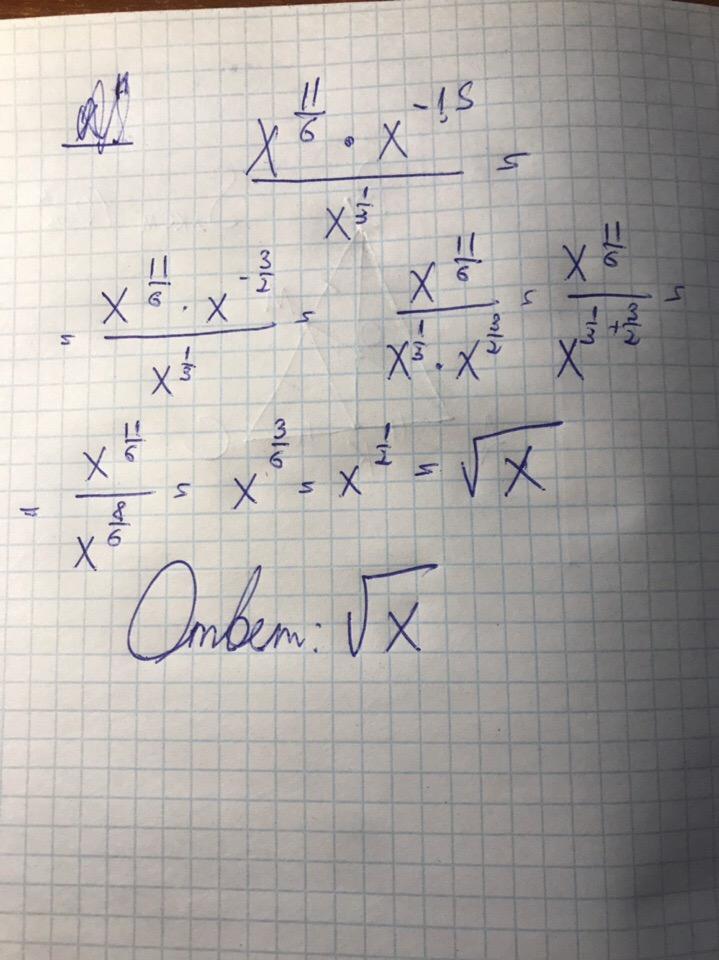 x^(11/6) · x^(-1,5) / x^(1/3) =
= x^(11/6) · x^(-3/2) / x^(1/3) = x^(11/6) / x^(1/3) · x^(2/3) = x^(11/6) / x^(1/3 + 2/3) =
= x^(11/6) / x^(8/6) = x^(3/6) = x^(1/2) = √x
Ответ: √x